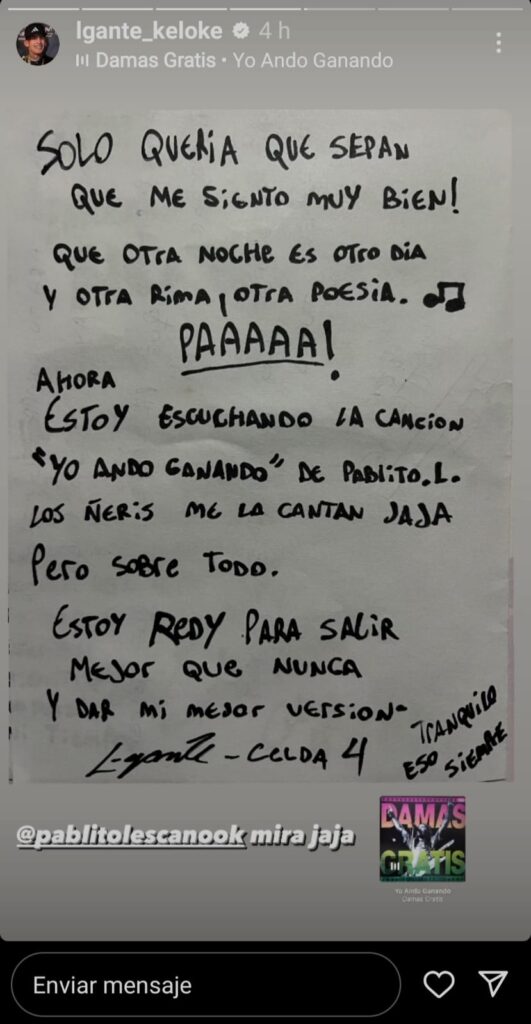 lgante_keloke 4 h
Damas Gratis • Yo Ando Ganando
SOLO QUERiA QUE SEPAN
QUE ME SiENTO MUY BiEN!
QUE OTrA NOCHE Es OTrO DiA
Y OTRA RiMA ¡OTRA POESiA.
PAAAAA!
AHORA
ESTOY ESCUCHANDO LA CANCiON
"YO ANDO GANANDO" DE PABLiTO.L.
LOS ÑERiS ME LA CANTAN JAJA
PerO SOBrE TODO.
ESTOY REDY PARA SALiR
MEJOR QUE NUNCA
Y DAR Mi MEJOr VERSiON-
L-gante - CELDA 4
TRANQUiLO
ESO SiEMPRE
@pablitolescanook mira jaja
DAMAS
GRATIS
Yo Ando Ganando
Damas Gratis
Enviar mensaje